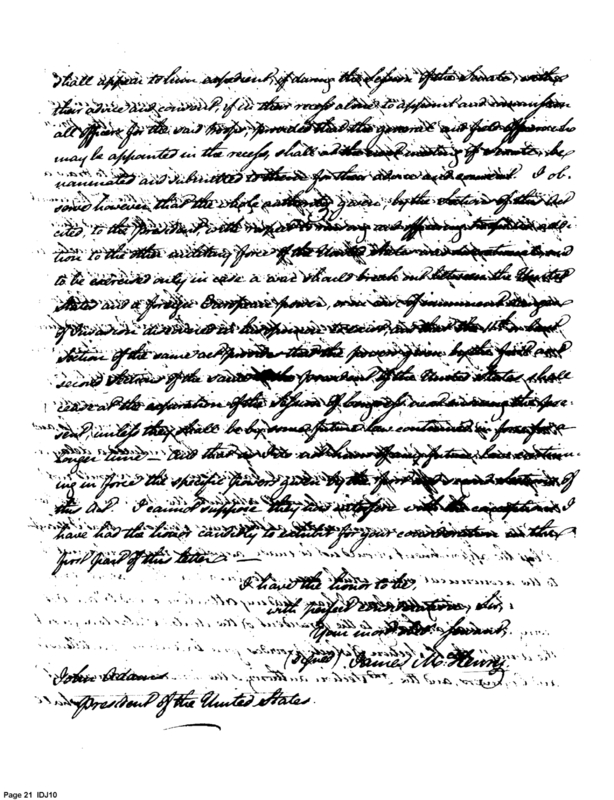 shall appear to him expedient, if during the Session of the Senate, with
their advice and consent, if in their recess alone to appoint and commission
all officers for the said troops, provided that the general and field officers who
may be appointed in the recess, shall at the next meeting of Senate, be
nominated and submitted to them for their advice and consent. I ob-
serve however that the whole authority given by the Section of this Act
cited, to the President with respect to raising and officering troops in addi-
tion to the other military force of the United States was
to be exercised only in case a war should break out between the United
States and a foreign European power, or in case of imminent danger
of Invasion discovered to exist, and that the
Section of the same act provides that the powers given by the first and
second Sections of the same to the president of the United States shall
cease at the expiration of the Session of Congress next ensuing the pre-
sent, unless they shall be by some future law continued in force for a
longer time — And that as I do not know of any future law continu-
ing in force the specific powers given by the first and second sections of
this Act. I cannot suppose they can interfere with the exceptions I
have had the honor candidly to exhibit for your consideration in the
first part of this letter —
I have the honor to be,
with perfect consideration, Sir,
Your most Obt. Servant,
(signed) James McHenry
John Adams
President of the United States.
Page 21 IDJ10